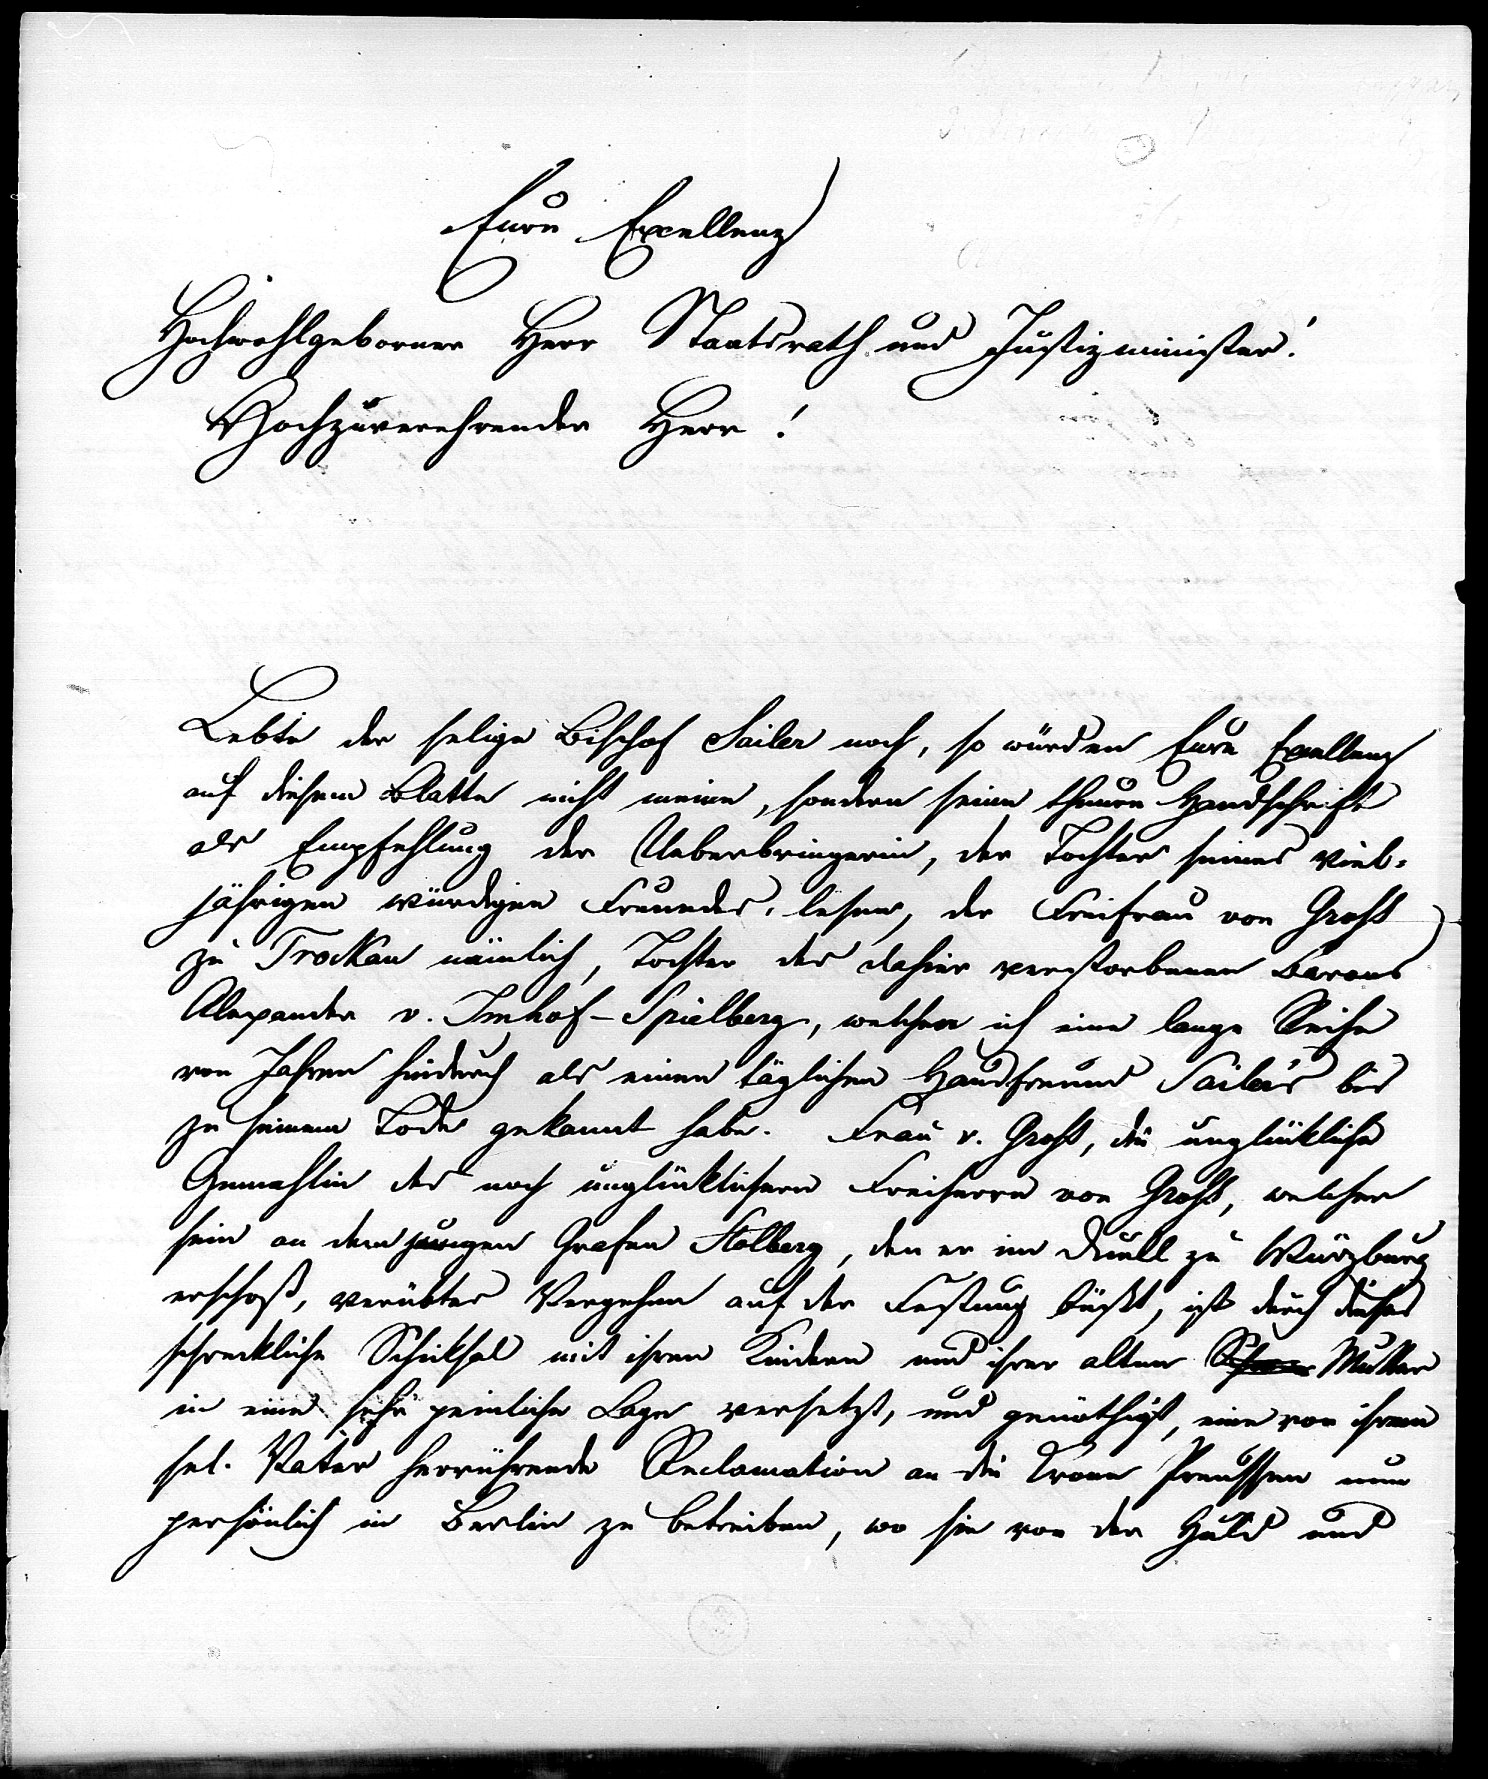 Eure Excellenz
Hochwohlgeborner Herr Staatsrath und Justizminister!
Hochzuverehrender Herr!
Lebte der selige Bischof Sailer noch, so würden Eure Excellenz
auf diesem Blatte nicht meine, sondern seine theure Handschrift
als Empfehlung der Ueberbringerin, der Tochter seines viel-
jährigen würdigen Freundes, lesen, der Freifrau von Groß
zu Trockau nämlich, Tochter des dahier verstorbenen Barons
Alexander v. Imhof-Spielberg, welchen ich eine lange Reihe
von Jahren hindurch als einen täglichen Hausfreund Sailer's bis
zu seinem Tode gekannt habe. Frau v. Groß, die unglükliche
Gemahlin des noch unglüklichern Freiherrn von Groß, welcher
sein an dem jungen Grafen Stolberg, den er im Duell zu Würzburg
erschoß, verübtes Vergehen auf der Festung büßt, ist durch dieses
schreckliche Schiksal mit ihren Kindern und ihrer alten Mutter
in eine sehr peinliche Lage versetzt, und genöthigt, eine von ihrem
sel. Vater herrührende Reclamation an die Krone Preussen nun
persönlich in Berlin zu betreiben, wo sie von der Huld und